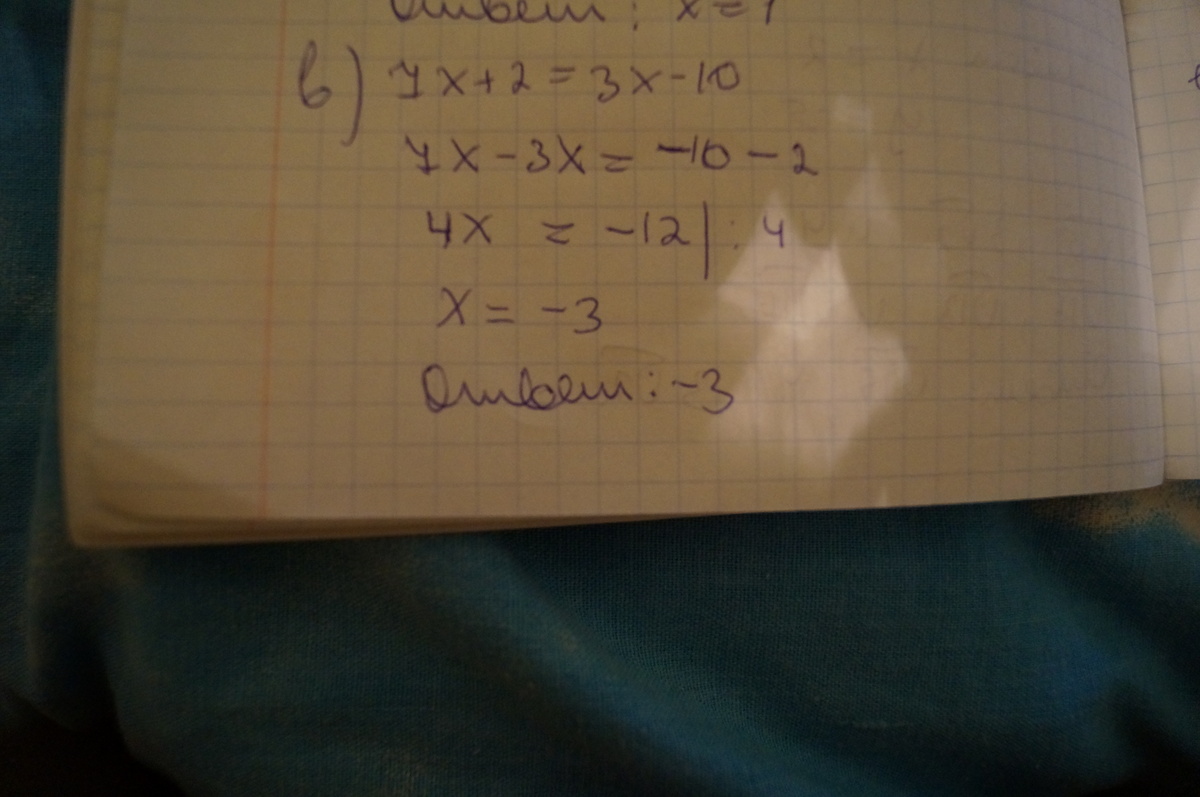 Ответ: x = 1
в) 7x+2=3x-10
7x-3x= -10-2
4x = -12 | : 4
x = -3
Ответ: -3